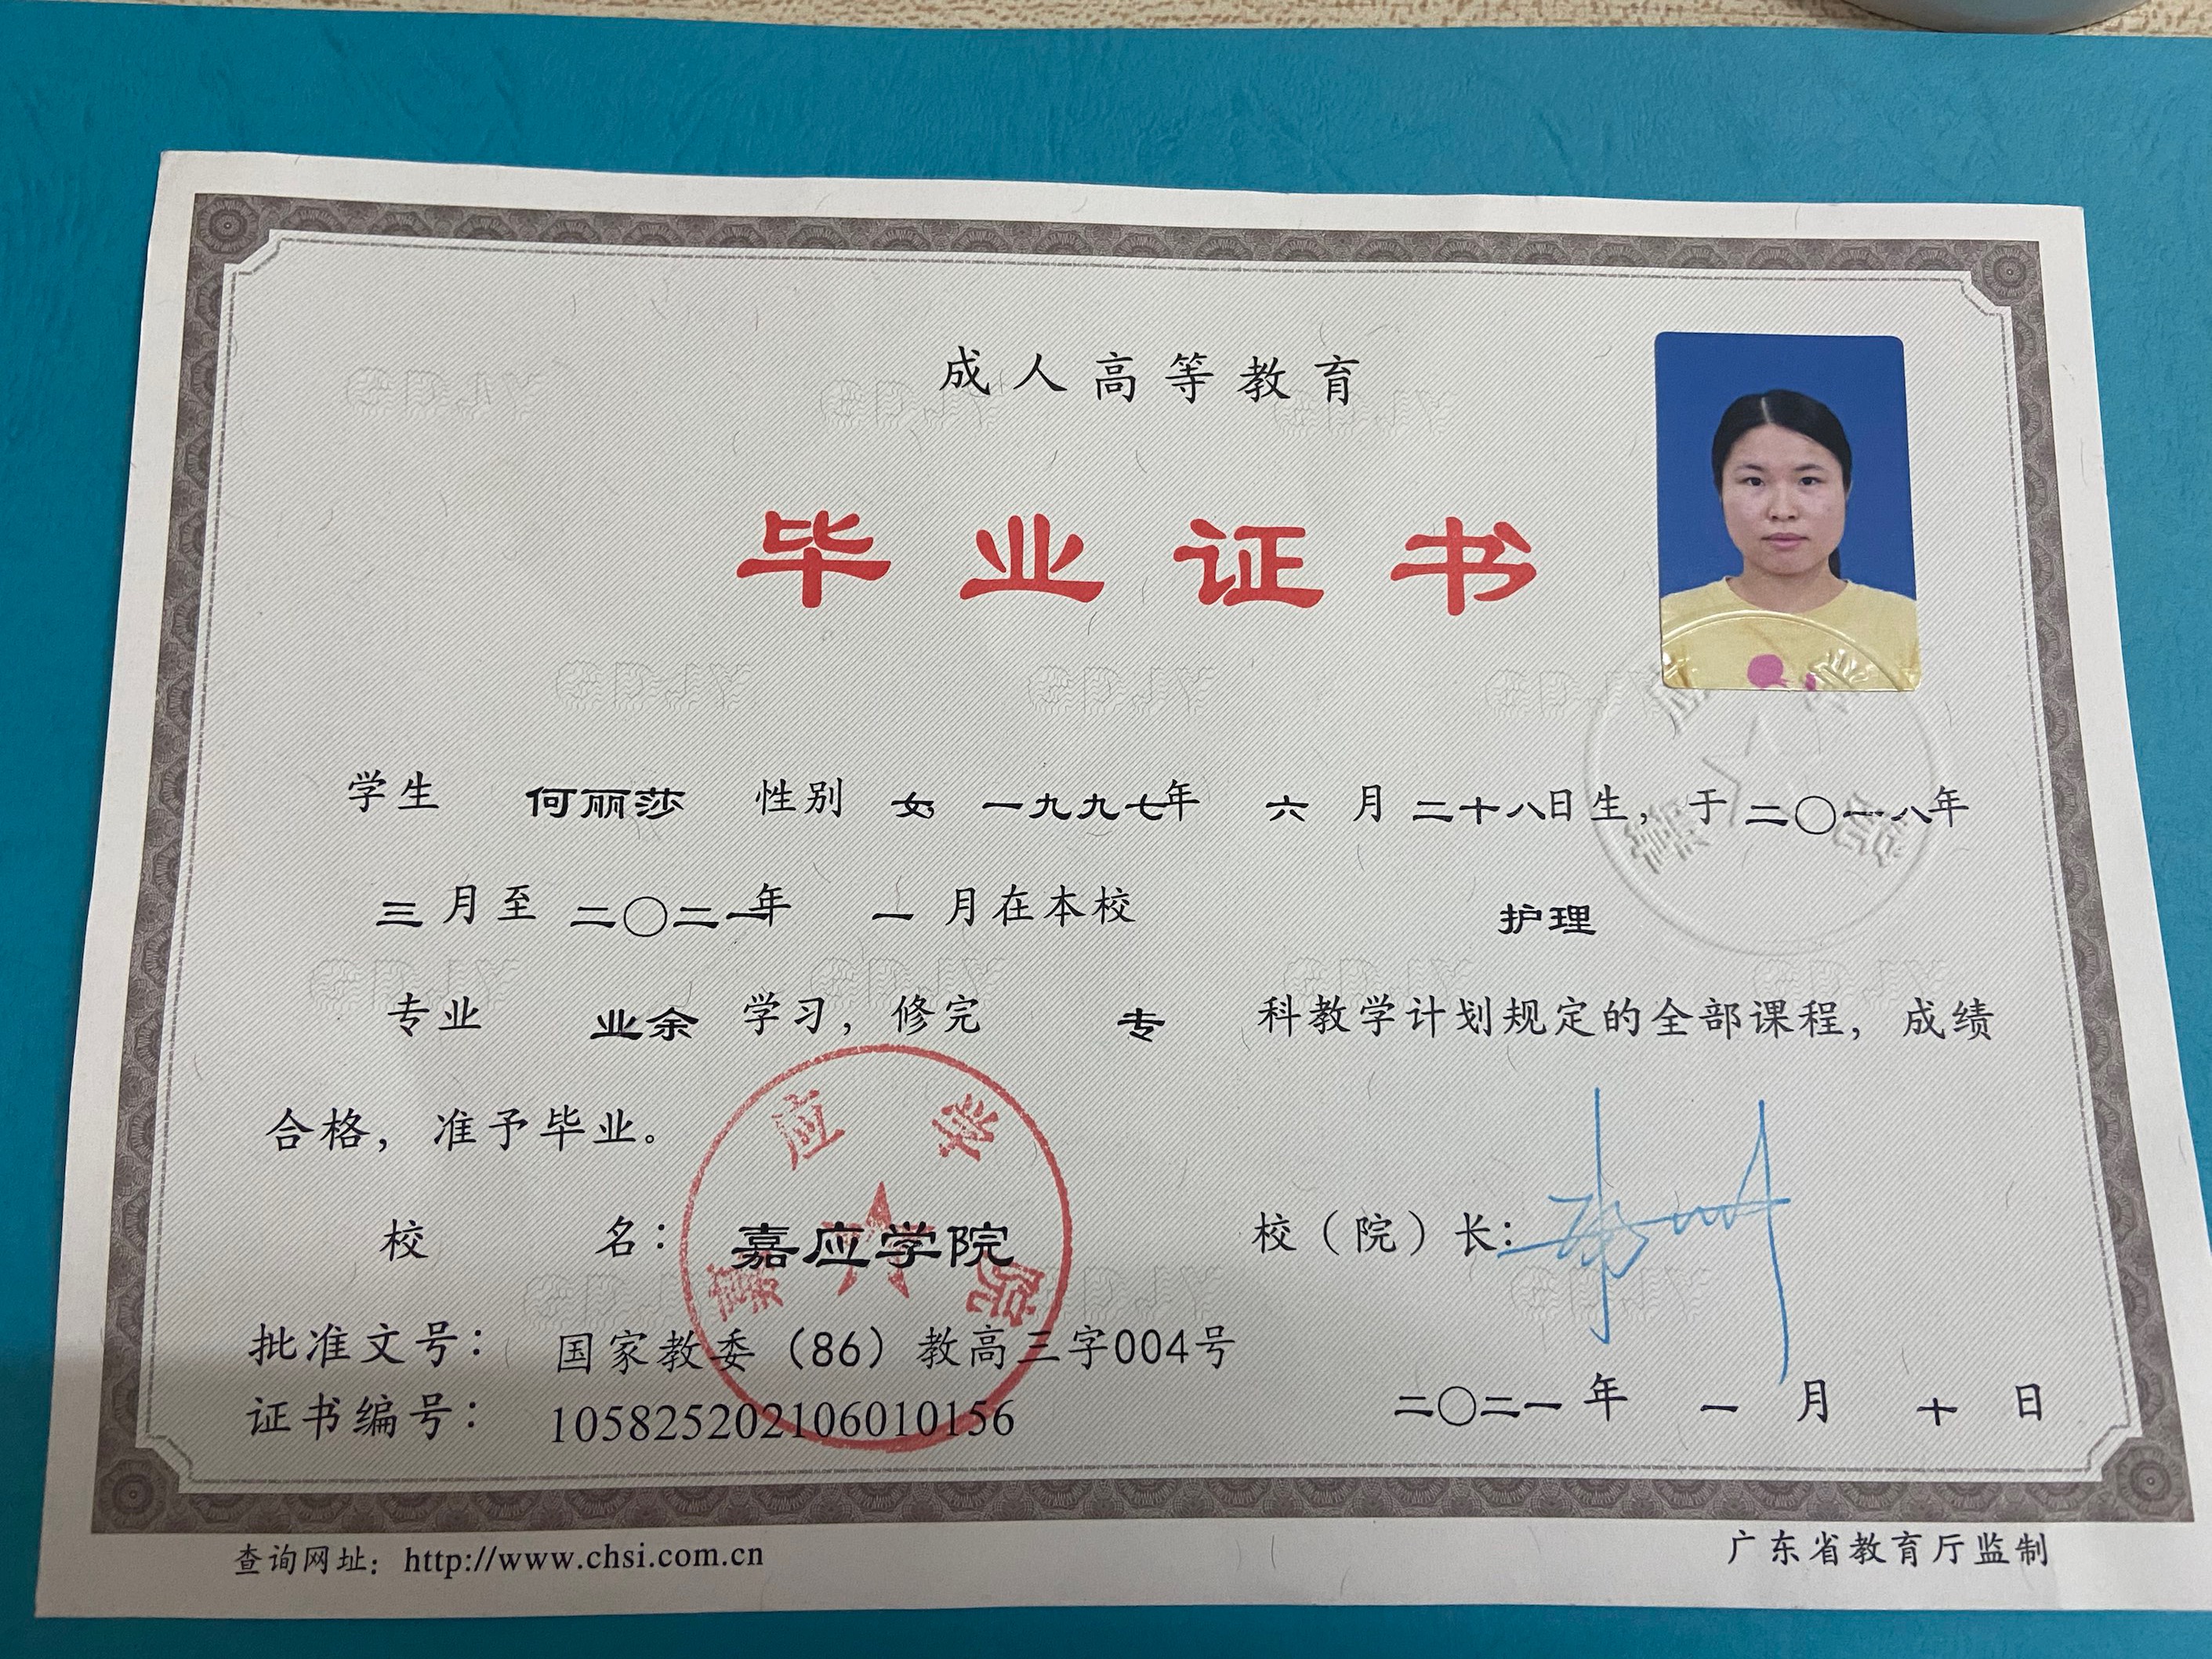 成人高等教育
毕业证书
学生 何丽莎 性别 女 一九九七年 六 月 二十八日生，于 二〇一八年
三 月至 二〇二一年 一 月在本校 护理
专业 业余 学习，修完 专 科教学计划规定的全部课程，成绩
合格，准予毕业。
校 名：嘉应学院 校（院）长：
嘉应学院
批准文号：国家教委（86）教高三字004号
证书编号：105825202106010156
二〇二一年 一 月 十 日
查询网址：http://www.chsi.com.cn 广东省教育厅监制